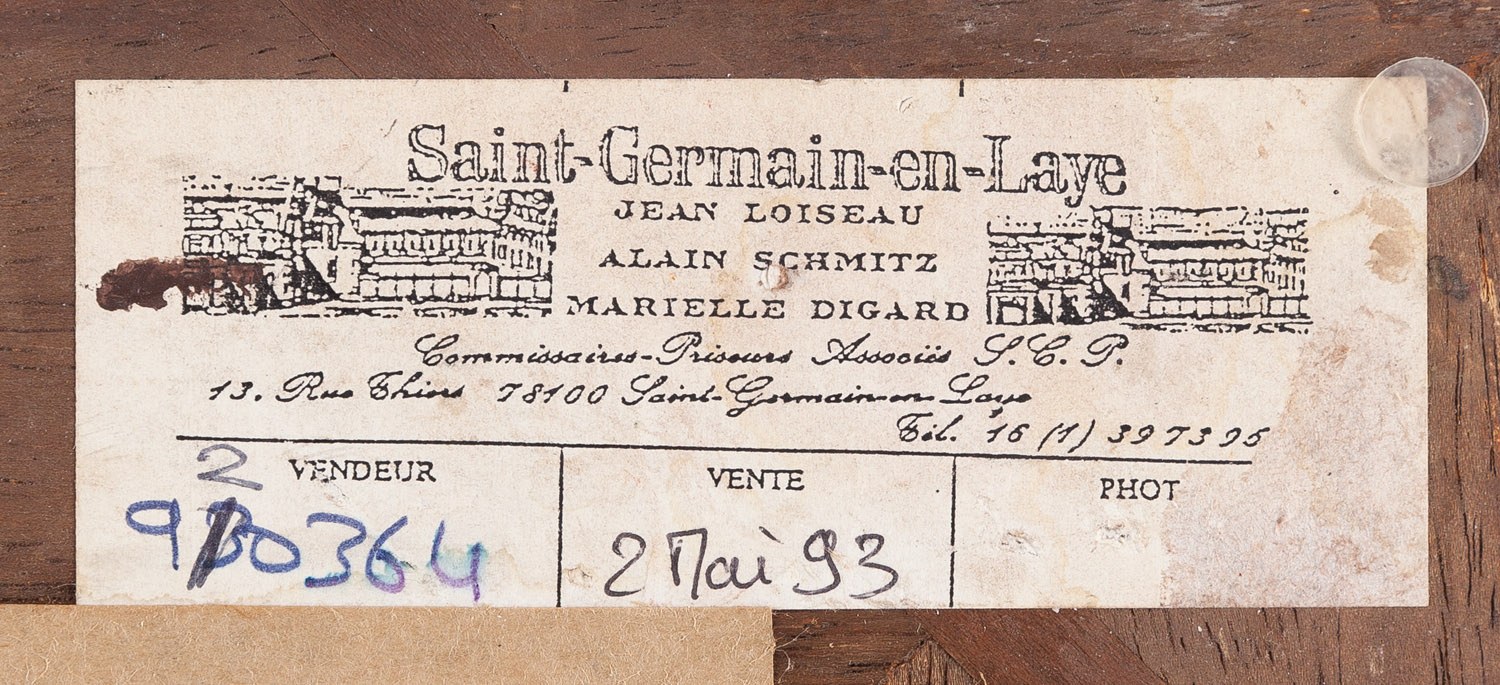 Saint-Germain-en-Laye
JEAN LOISEAU
ALAIN SCHMITZ
MARIELLE DIGARD
Commissaires-Priseurs Associés S.C.P.
13. Rue Thiers 78100 Saint-Germain-en-Laye
Tél. 16 (1) 3973 95
VENDEUR VENTE PHOT
2
0364 2 Mai 93